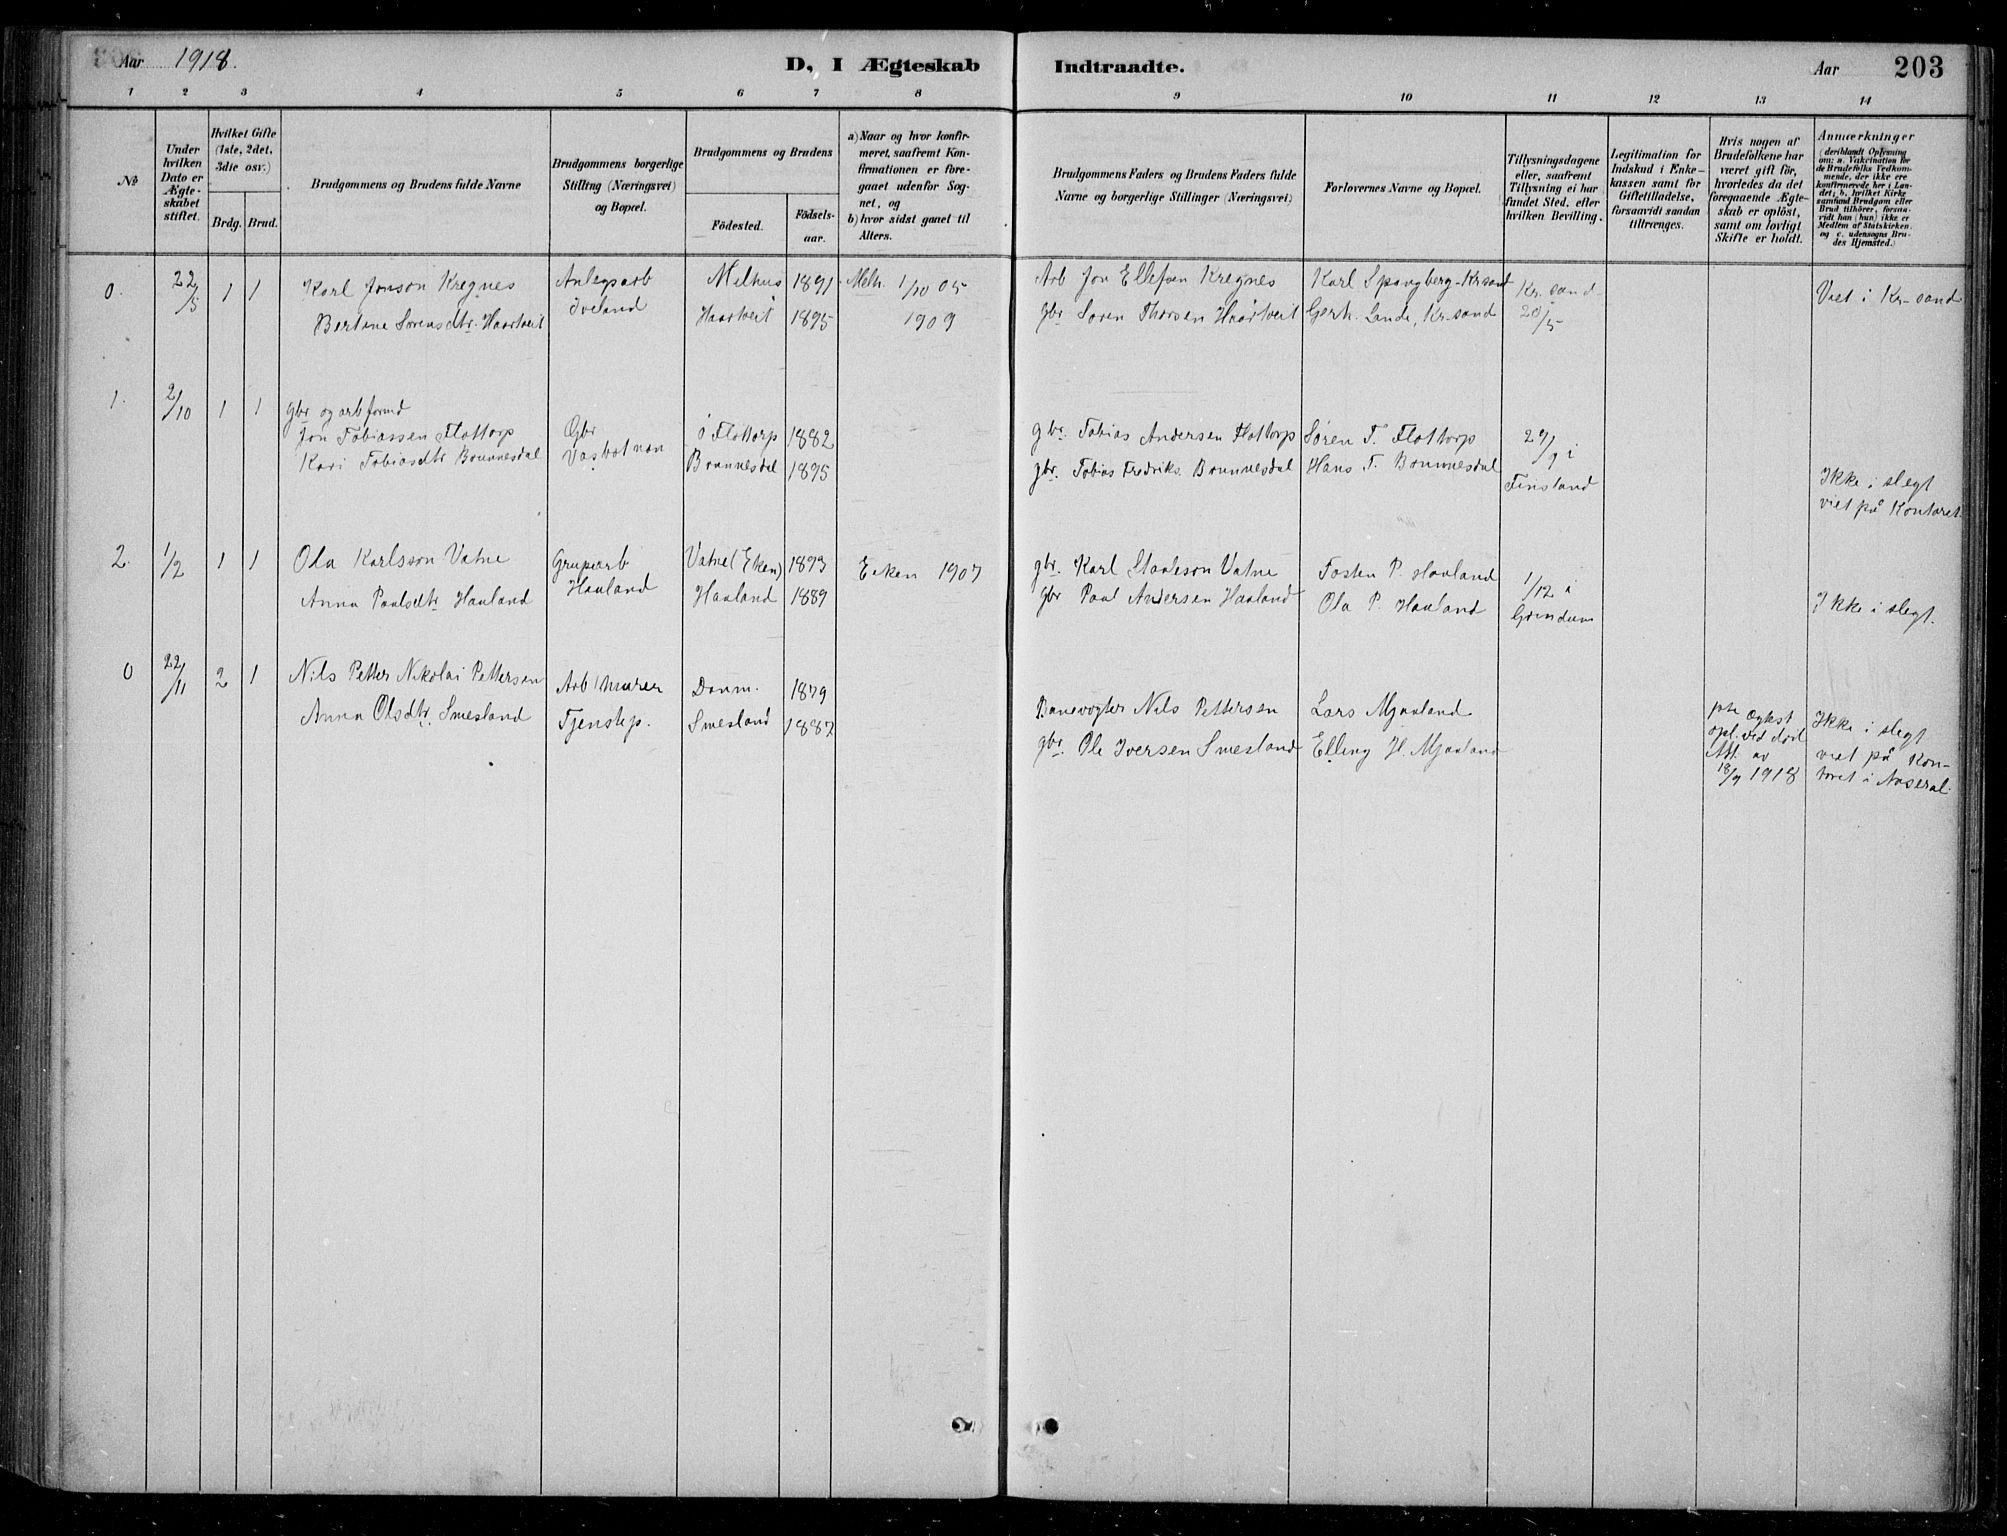 Aar 1918.
D, I Ægteskab Indtraadte.
Aar 203
1 2 3 4 5 6 7 8 9 10 11 12 13 14
No
Under hvilken Dato er Ægteskabet stiftet.
Hvilket Gifte (1ste, 2det, 3die osv.)
Brdg. Brud.
Brudgommens og Brudens fulde Navne
Brudgommens borgerlige Stilling (Næringsvei) og Bopæl.
Brudgommens og Brudens
Födested.
Födsels-aar.
a) Naar og hvor konfirmeret, saafremt Konfirmationen er foregaaet udenfor Sognet, og
b) hvor sidst gaaet til Alters.
Brudgommens Faders og Brudens Faders fulde Navne og borgerlige Stillinger (Næringsvei)
Forlovernes Navne og Bopæl.
Tillysningsdagene eller, saafremt Tillysning ei har fundet Sted, efter hvilken Bevilling.
Legitimation for Indskud i Enkekassen samt for Giftetilladelse, forsaavidt saadan tiltrænges.
Hvis nogen af Brudefolkene har været gift før, hvorledes da det foregaaende Ægteskab er oplöst, samt om lovligt Skifte er holdt.
Anmærkninger (deriblandt Oplysning om: a. Vakcination for de Brudefolks Vedkommende, der ikke ere konfirmerede her i Landet; b. hvilket Kirkesamfund Brudgom eller Brud tilhörer, forsaavidt han (hun) ikke er Medlem af Statskirken, og c. udensogns Brudes Hjemsted.)
0. 22/5 1 1 Karl Jonson Kregnes Anlegsarb Melhus 1891 Melh. 1/10 05 Arb Jon Ellefsen Kregnes Karl Spangberg Krsand Kr. sand Viet i Kr-sand
Bertine Sørensdtr. Haartveit Iveland Haartveit 1895 1909 gbr Søren Thorsen Haartveit Gerh. Lande, Kr-sand 20/5
1. 2/10 1 1 gbr og arbformd
Jon Tobiassen Flottorp Gbr Ø Flottorp 1882 gbr. Tobias Andersen Flottorp Søren T. Flottorp 29/9 i
Kari Tobiasdtr Brunnesdal Vasbotnen Brunnesdal 1895 gbr. Tobias Fredriks. Brunnesdal Hans T. Brunnesdal Finsland Ikke i slegt
viet på Kontoret.
2. 1/2 1 1 Ola Karlsson Vatne Grupearb Vatne (Eken) 1893 Eeken 1907 gbr. Karl Staaleson Vatne Tosten P. Haaland 1/12 i
Anna Paulsdtr Haaland Haaland Haaland 1889 gbr Paul Andersen Haaland Ola P. Haaland Grindum Ikke i slegt.
0 22/11 2 1 Nils Petter Nikolai Pettersen Arb (murer Danm. 1879 Banevogter Nils Pettersen Lars Mjaaland
Anna Olsdtr. Smesland Tjenstep. Smesland 1887 gbr. Ole Iversen Smesland Elling H. Mjaaland
opl. ved död
Att. av
18/9 1918
Ikke i slegt
viet på Kon-
toret i Aaseral.